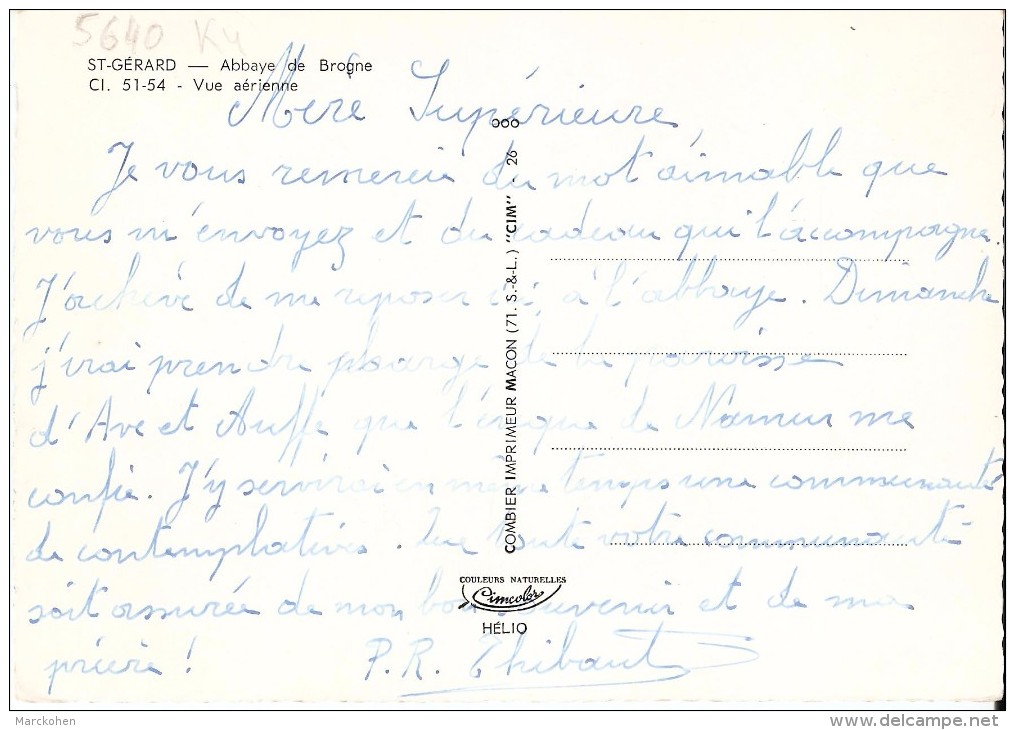 5640
ST-GÉRARD — Abbaye de Brogne
Cl. 51-54 - Vue aérienne
Mère Supérieure
Je vous remercie du mot aimable que
vous m'envoyez et du cadeau qui l'accompagne.
J'achève de me reposer ici à l'abbaye. Dimanche
j'irai prendre charge de la paroisse
d'Ave et Auffe que l'évêque de Namur me
confie. J'y servirai en même temps une communauté
de contemplatives. Que toute votre communauté
soit assurée de mon bon souvenir et de ma
prière !
P. R. Thibaut
COMBIER IMPRIMEUR MACON (71. S.-&-L.) "CIM" 26 000
COULEURS NATURELLES
Cimcolor
HÉLIO
Marckohen
delcampe.net